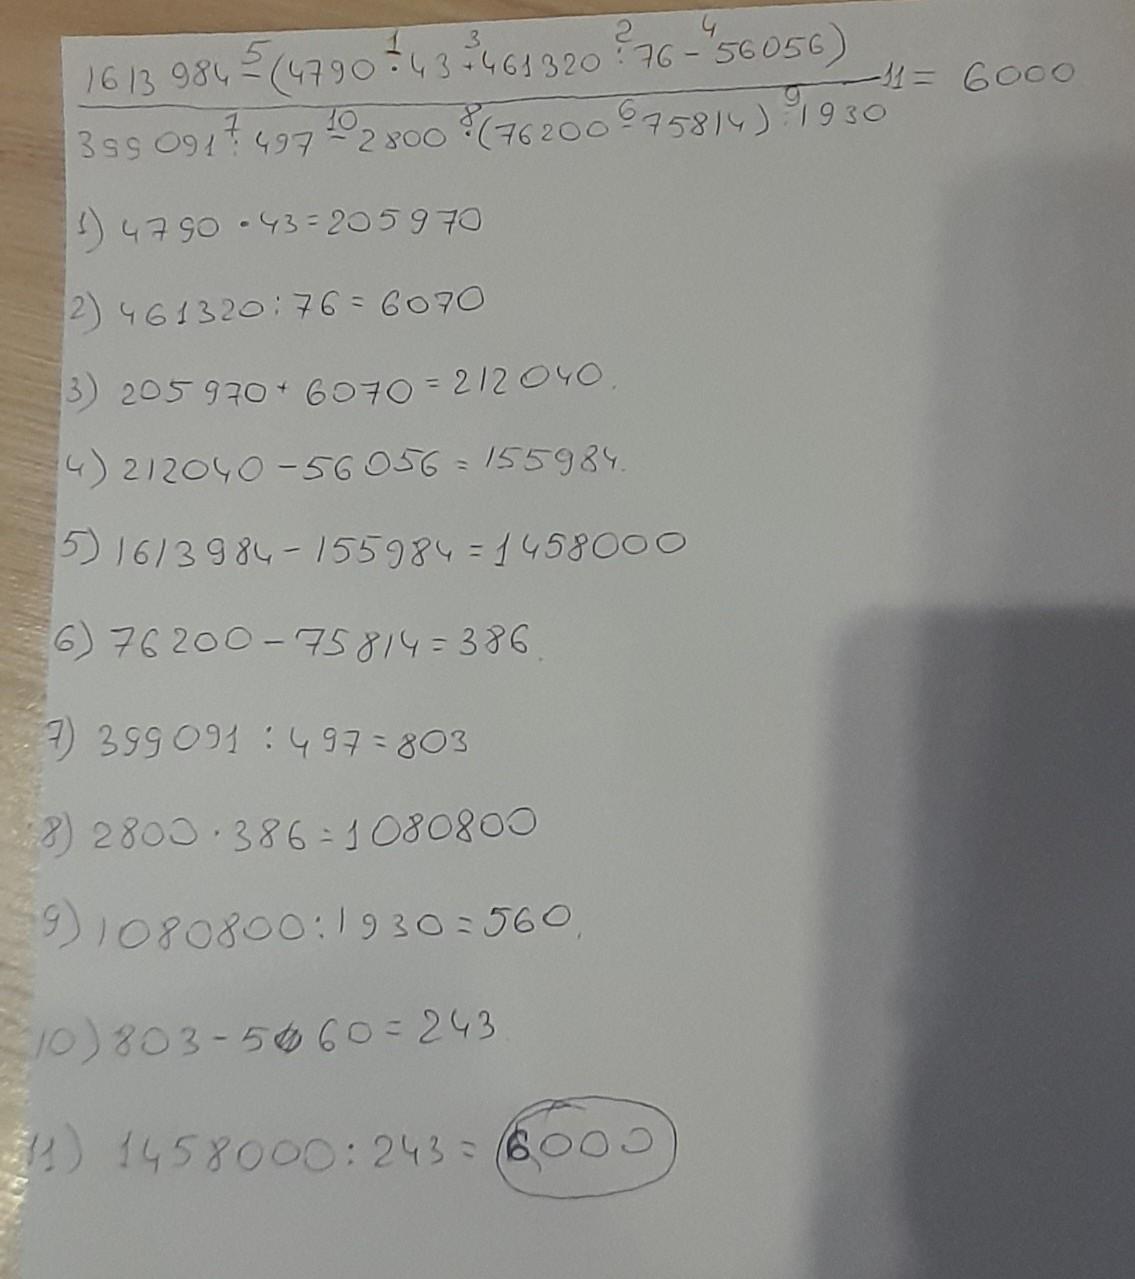 1613984 - (4790 · 43 + 461320 : 76 - 56056)
399091 : 497 - 2800 · (76200 - 75814) : 1930
= 6000
1) 4790 · 43 = 205970
2) 461320 : 76 = 6070
3) 205970 + 6070 = 212040.
4) 212040 - 56056 = 155984.
5) 1613984 - 155984 = 1458000
6) 76200 - 75814 = 386.
7) 399091 : 497 = 803
8) 2800 · 386 = 1080800
9) 1080800 : 1930 = 560.
10) 803 - 560 = 243
11) 1458000 : 243 = 6000